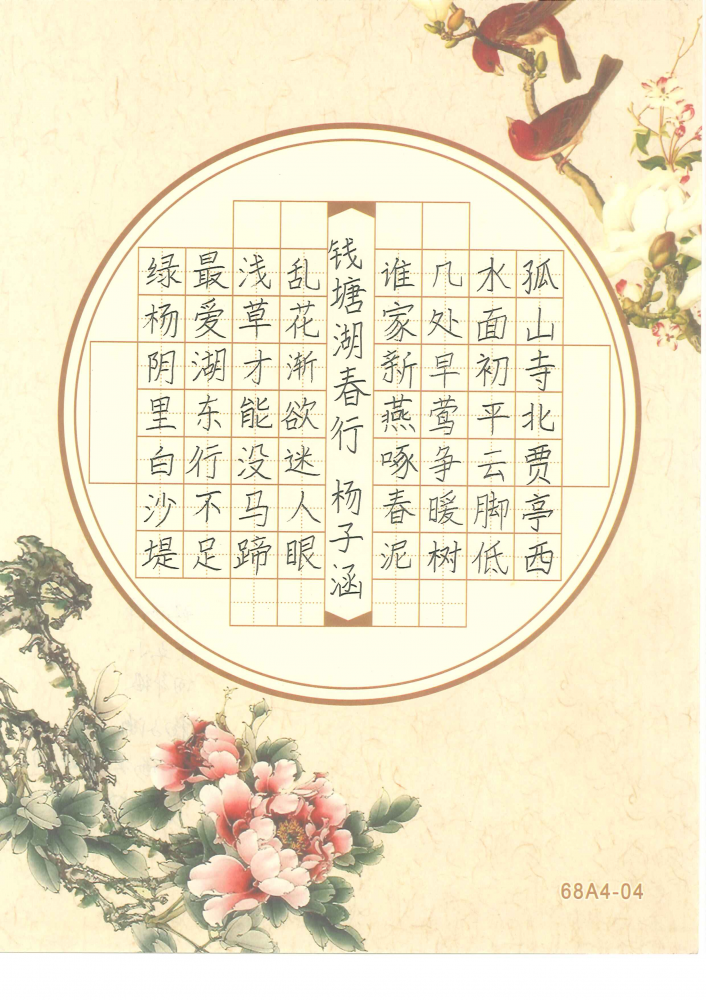 孤山寺北贾亭西
水面初平云脚低
几处早莺争暖树
谁家新燕啄春泥
钱塘湖春行 杨子涵
乱花渐欲迷人眼
浅草才能没马蹄
最爱湖东行不足
绿杨阴里白沙堤
68A4-04